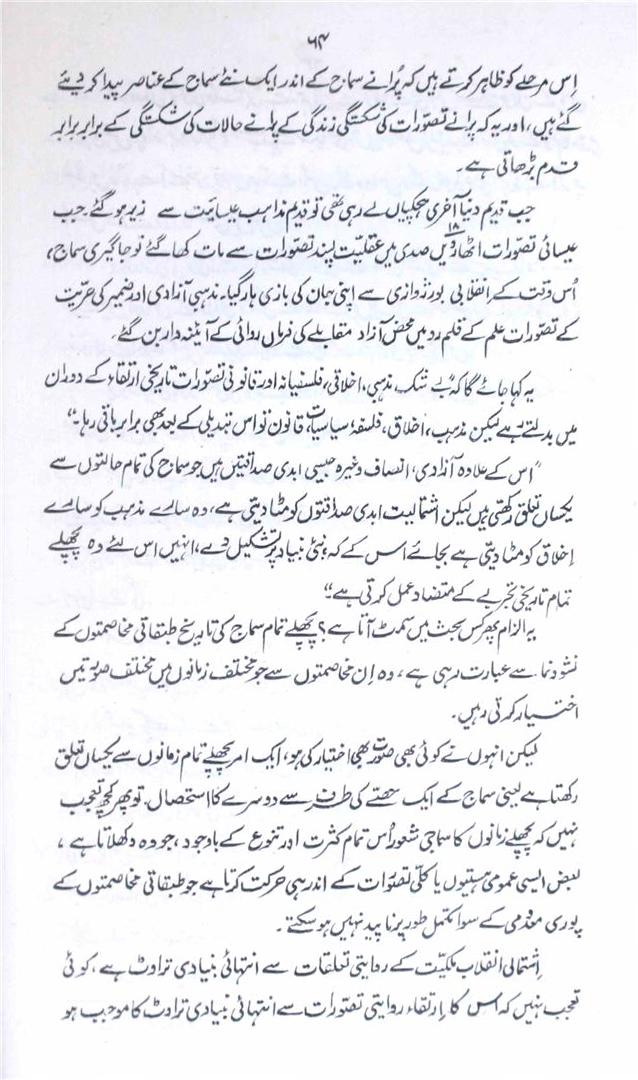 ۶۴
اِس مرحلے کو ظاہر کرتے ہیں کہ پُرانے سماج کے اندر ایک نئے سماج کے عناصر پیدا کر دیئے
گئے ہیں، اور یہ کہ پرانے تصوّرات کی شکستگی زندگی کے پرانے حالات کی شکستگی کے برابر برابر
قدم بڑھاتی ہے۔
جب قدیم دنیا آخری ہچکیاں لے رہی تھی تو قدیم مذاہب عیسائیت سے زیر ہو گئے۔ جب
عیسائی تصوّرات اٹھارویں ۱۸ صدی میں عقلیت پسند تصوّرات سے مات کھا گئے تو جاگیری سماج،
اُس وقت کے انقلابی بورژوازی سے اپنی جان کی بازی ہار گیا۔ مذہبی آزادی اور ضمیر کی حریت
کے تصوّرات علم کے قلم رو میں محض آزاد مقابلے کی فرماں روائی کے آئینہ دار بن گئے۔
یہ کہا جائے گا کہ "بے شک مذہبی، اخلاقی، فلسفیانہ اور قانونی تصورات تاریخی ارتقاء کے دوران
میں بدلتے رہے لیکن مذہب، اخلاق، فلسفۂ سیاسیات قانون تو اس تبدیلی کے بعد بھی برابر باقی رہا۔"
"اس کے علاوہ آزادی، انصاف وغیرہ جیسی ابدی صداقتیں ہیں جو سماج کی تمام حالتوں سے
یکساں تعلق رکھتی ہیں لیکن اشتمالیت ابدی صداقتوں کو مٹا دیتی ہے، وہ سارے مذہب کو سارے
اخلاق کو مٹا دیتی ہے بجائے اس کے کہ نئی بنیاد پر تشکیل دے، انہیں اس لئے وہ پچھلے
تمام تاریخی تجربے کے متضاد عمل کرتی ہے۔"
یہ الزام پھر کس بحث میں سمٹ آتا ہے؟ پچھلے تمام سماج کی تاریخ طبقاتی مخاصمتوں کے
نشوونما سے عبارت رہی ہے، وہ اِن مخاصمتوں سے جو مختلف زمانوں میں مختلف صورتیں
اختیار کرتی رہیں۔
لیکن انہوں نے کوئی بھی صورت بھی اختیار کی ہو، ایک امر پچھلے تمام زمانوں سے یکساں تعلق
رکھتا ہے یعنی سماج کے ایک حصے کی طرف سے دوسرے کا استحصال۔ تو پھر کچھ تعجب
نہیں کہ پچھلے زمانوں کا سماجی شعور اُس تمام کثرت اور تنوع کے باوجود، جو وہ دکھلاتا ہے،
بعض ایسی عمومی ہستیوں یا کلّی تصوّرات کے اندر ہی حرکت کرتا ہے جو طبقاتی مخاصمتوں کے
پوری معدومی کے سوا مکمّل طور پر ناپید نہیں ہو سکتے۔
اِشتمالی انقلاب ملکیّت کے روایتی تعلقات سے انتہائی بنیادی تراوٹ ہے، کوئی
تعجب نہیں کہ اس کا اِرتقاء روایتی تصوّرات سے انتہائی بنیادی تراوٹ کا موجب ہو